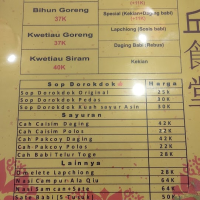 Bihun Goreng
37K
Spesial (Kekian+Daging babi)
Kwetiau Goreng
37K
Lapchiong (Sosis babi)
Daging Babi (Rebus)
Kwetiau Siram
40K
Kekian
食堂
Sop Dorokdok Harga
Sop Dorokdok Original 35K
Sop Dorokdok Pedas 30K
Sop Dorokdok Kuah segar Asin 38K
Sayuran
Cah Caisim Daging 42K
Cah Caisim Polos 22K
Cah Pakcoy Daging 42K
Cah Pakcoy Polos 22K
Cah Babi Telur Toge 28K
Lainnya
Omelete Lapchiong 28K
Nasi Campur Ala Qiu 64K
Nasi Samcan+Sate 64K
Sate Babi (5 Tusuk) 50K